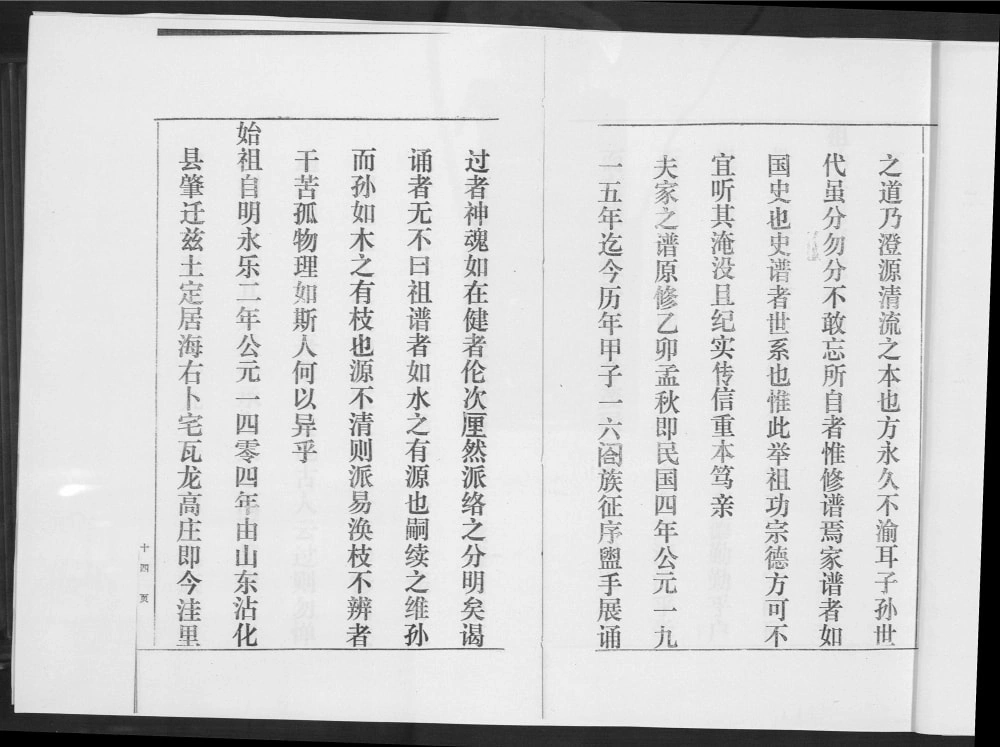 之道乃澄源清流之本也方永久不渝耳子孙世
代虽分勿分不敢忘所自者惟修谱焉家谱者如
国史也史谱者世系也惟此举祖功宗德方可不
宜听其淹没且纪实传信重本笃亲
夫家之谱原修乙卯孟秋即民国四年公元一九
一五年迄今历年甲子一六阖族征序盥手展诵
过者神魂如在健者伦次厘然派络之分明矣谒
诵者无不曰祖谱者如水之有源也嗣续之维孙
而孙如木之有枝也源不清则派易涣枝不辨者
干苦孤物理如斯人何以异乎
始祖自明永乐二年公元一四零四年由山东沾化
县肇迁兹土定居海右卜宅瓦龙高庄即今洼里
十四页